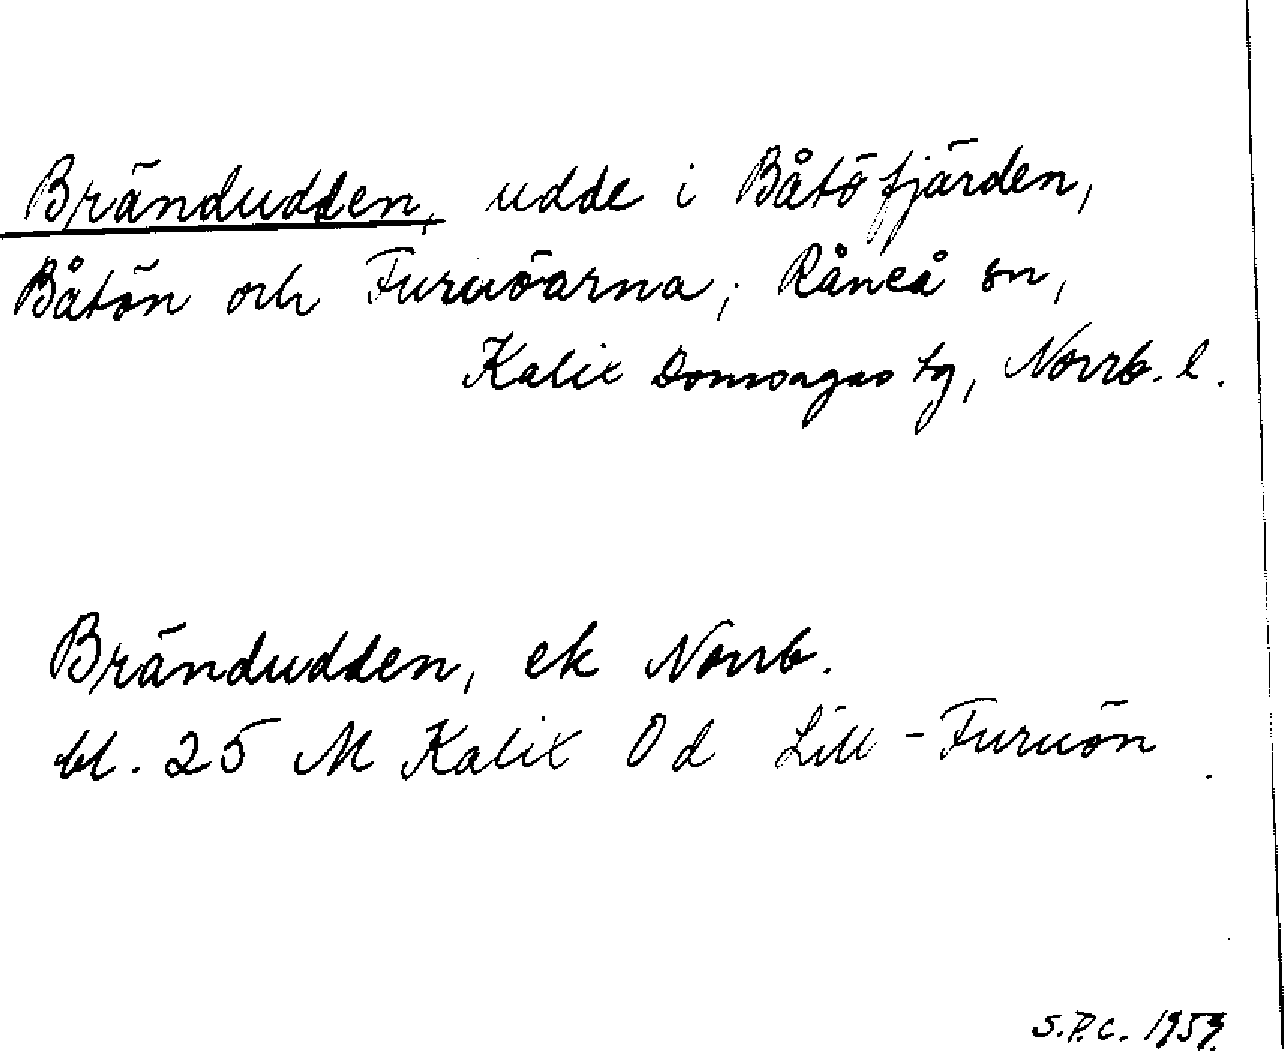 Brändudden, udde i Båtöfjärden,
Båtön och Furuöarna; Råneå sn,
Kalix Domsagas tg, Norrb. l.
Brändudden, ek Norrb.
bl. 25 M Kalix Od Lill-Furuön.
S.P.C. 1959.